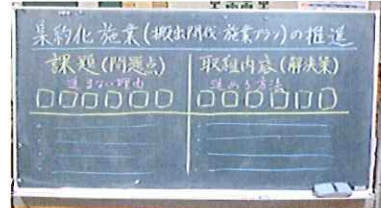 集約化施業(搬出間伐・施業プラン)の推進
課題(問題点)
進まない理由
取組内容(解決策)
進める方法